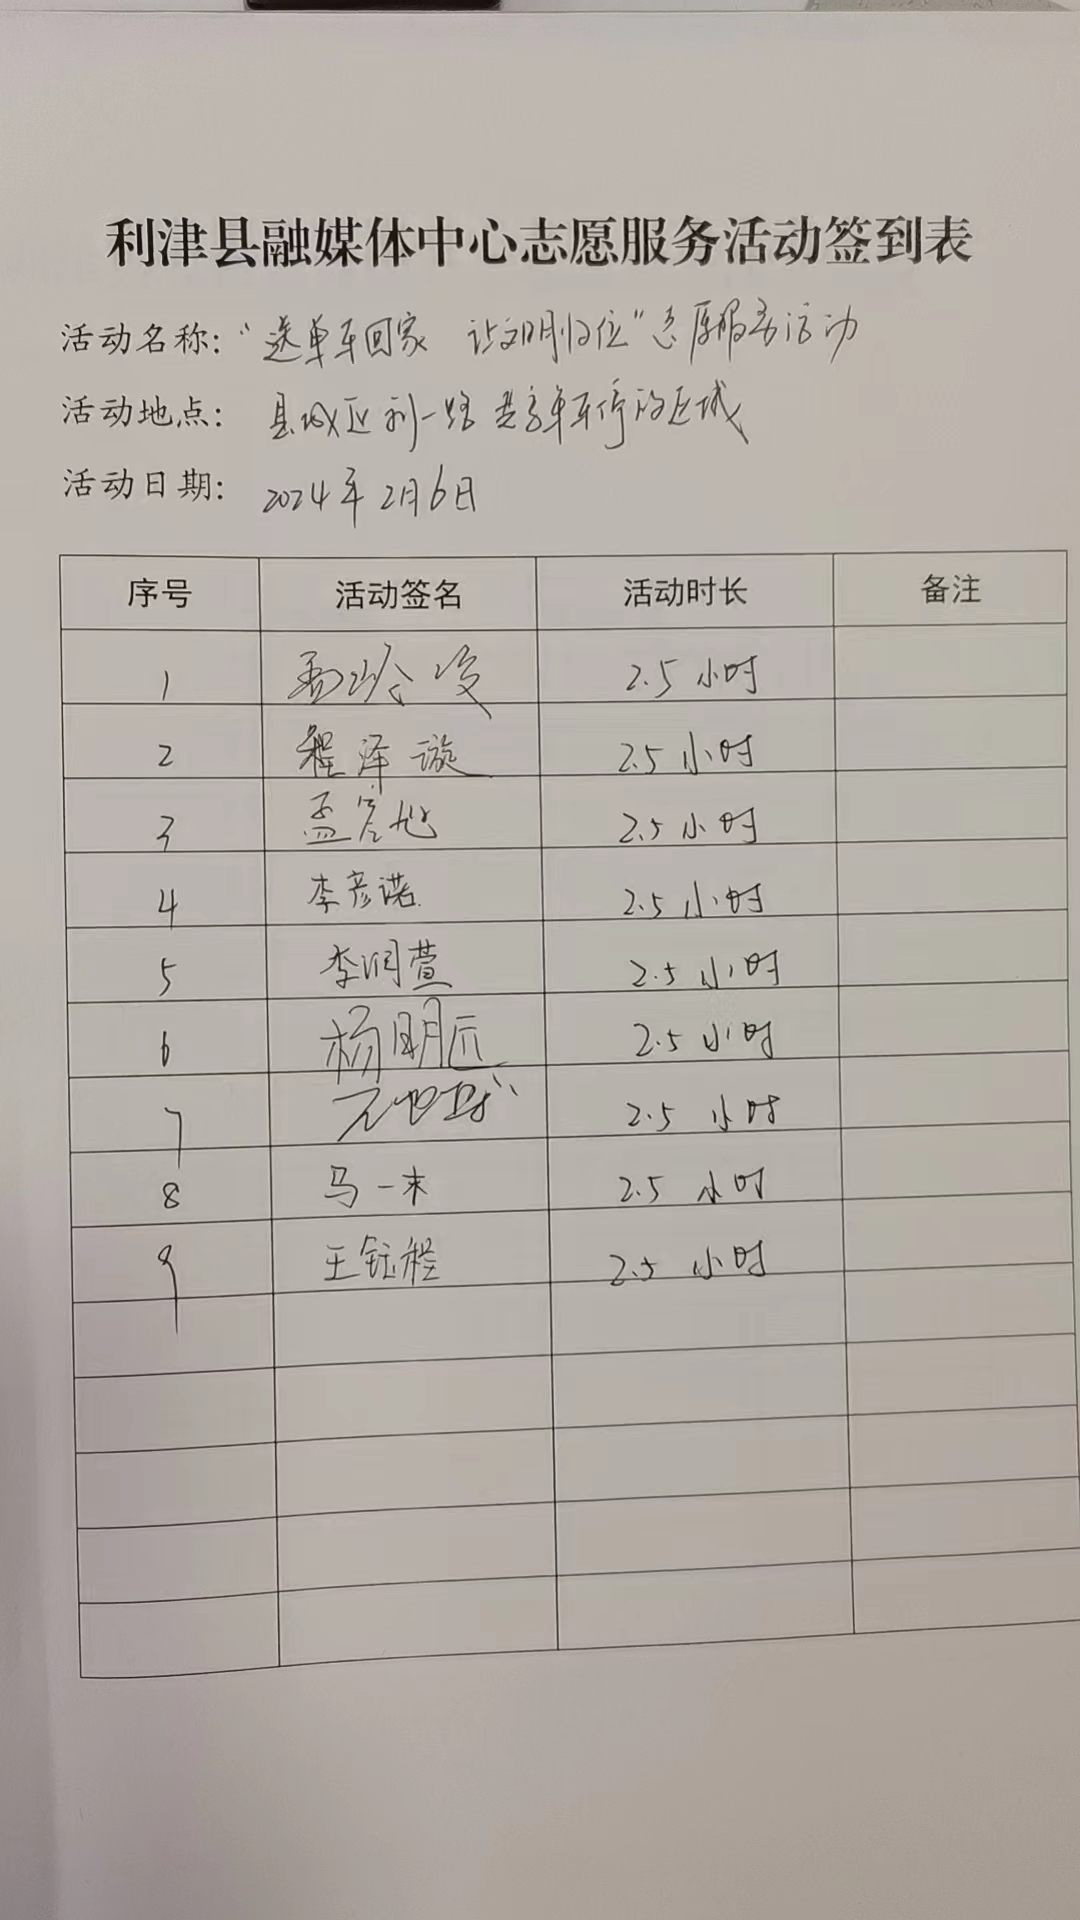 利津县融媒体中心志愿服务活动签到表
活动名称：“送单车回家 让文明归位”志愿服务活动
活动地点：县城区利一路共享单车停放区域
活动日期：2024年2月6日
序号 活动签名 活动时长 备注
1 2.5小时
2 程泽璇 2.5小时
3 孟 2.5小时
4 李彦诺 2.5小时
5 李润萱 2.5小时
6 杨明 2.5小时
7 2.5小时
8 马一末 2.5小时
9 王钰程 2.5小时